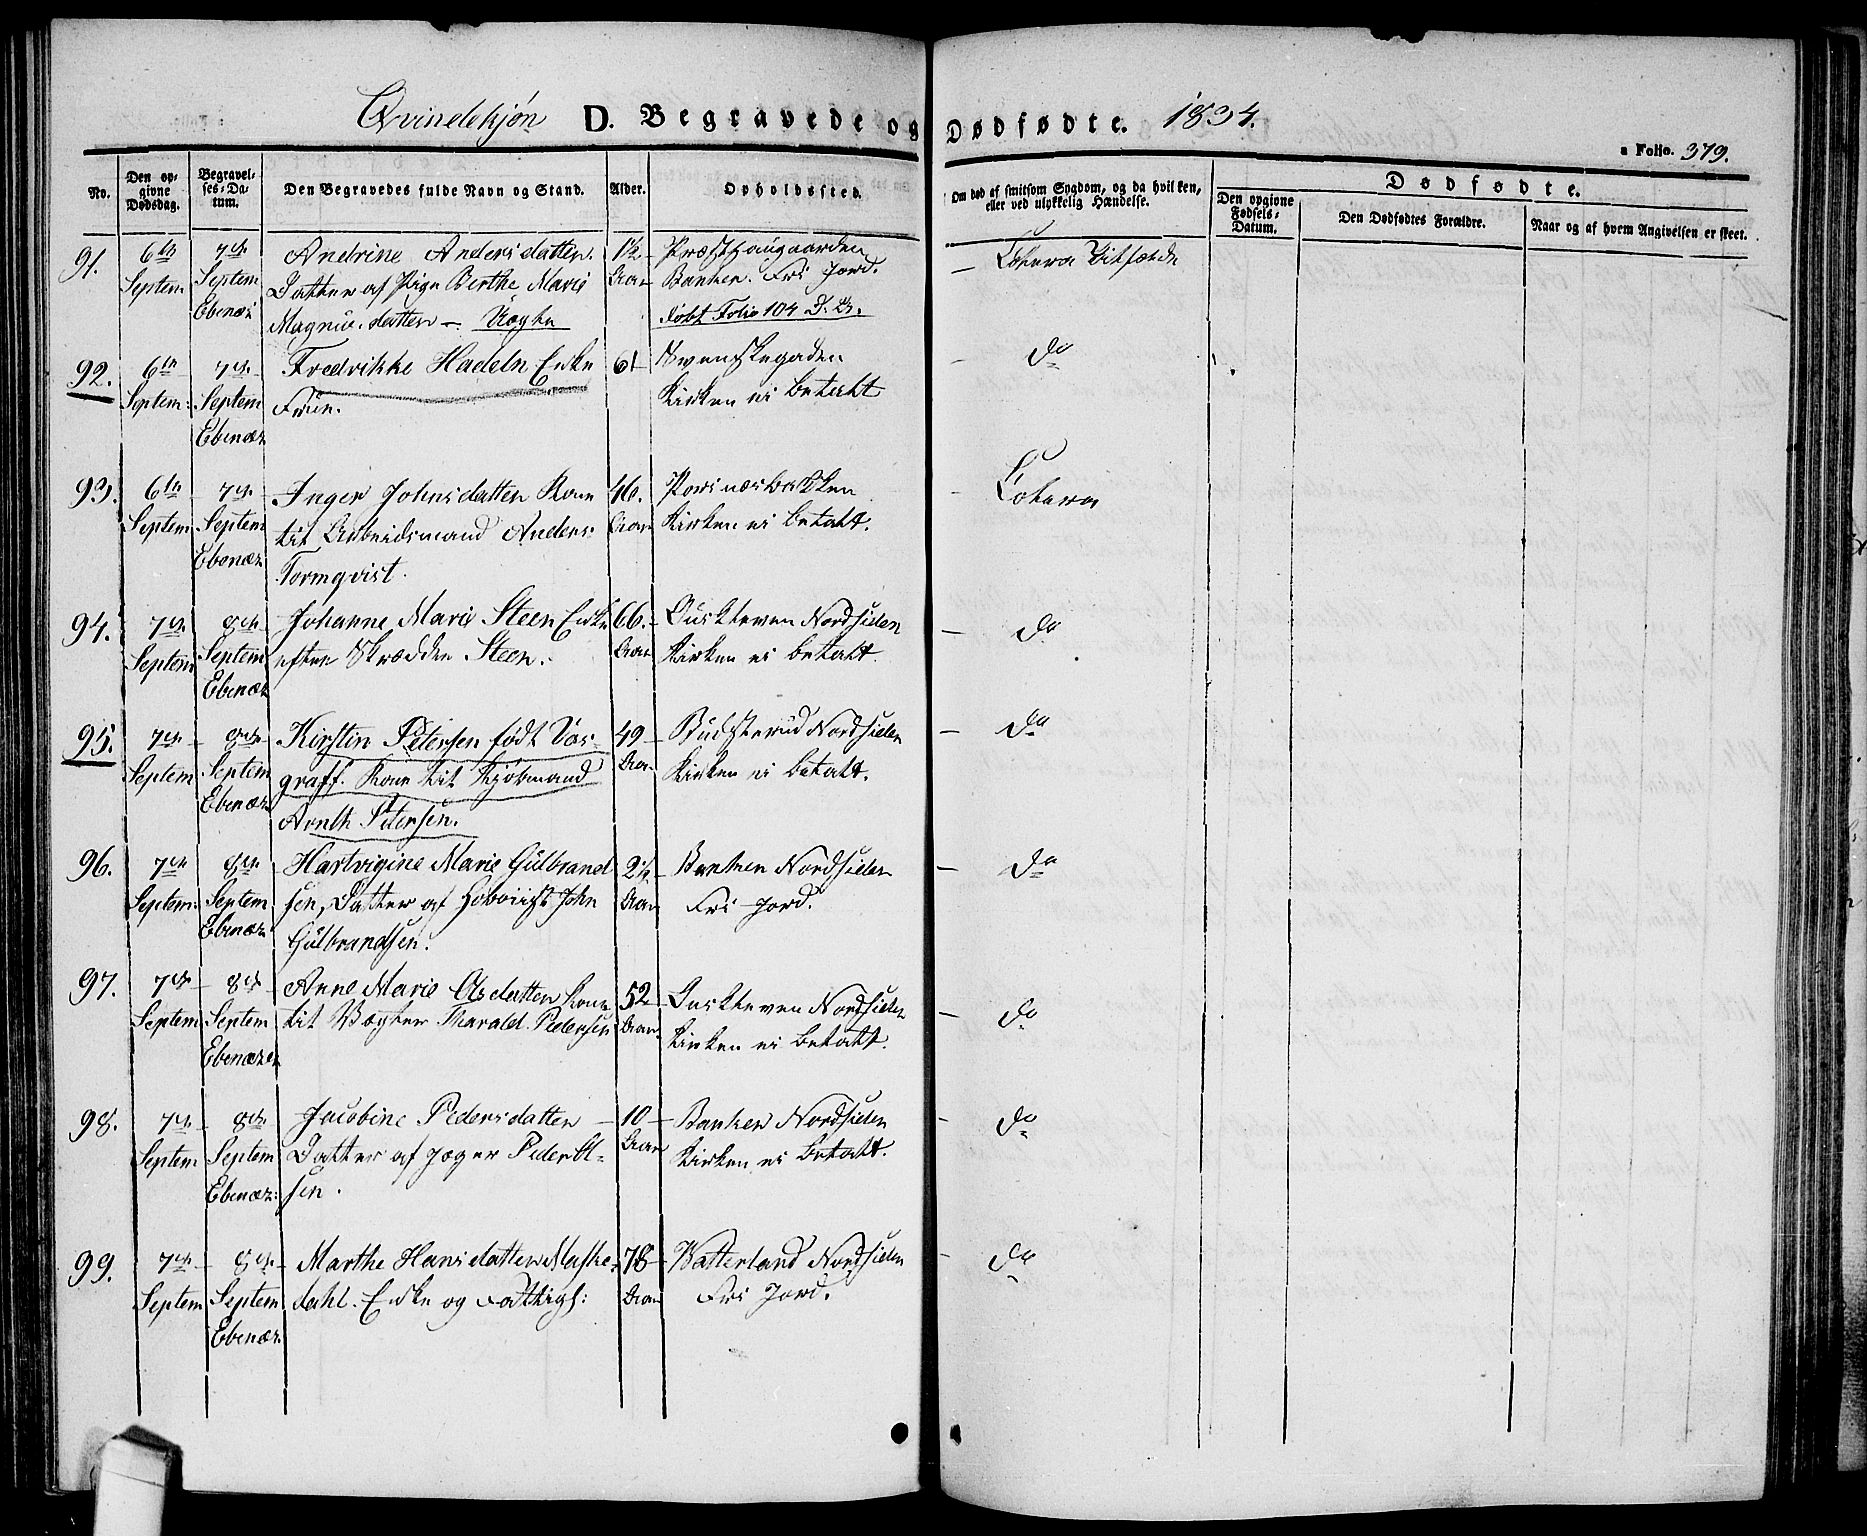 Qvindekjøn D. Begravede og Dødfødte. 1834.
a Folio. 379.
No.
Den op-
givne
Dødsdag.
Begravel-
ses-Da-
tum.
Den Begravedes fulde Navn og Stand.
Alder.
Opholdssted.
Om død af smitsom Sygdom, og da hvilken,
eller ved ulykkelig Hændelse.
Dødfødte.
Den opgivne
Fødsels-
Datum.
Den Dødfødtes Forældre.
Naar og af hvem Angivelsen er skeet.
91. 6te Septem 7de Septem Ebenæz
Andrine Andersdatter
Datter af Pige Berthe Marie
Magnus datter —
1½ Aar
Banken. Fri Jord.
Født Folio 104
Kolera Tilfælde
92. 6te Septem: 7de Septem Ebenæz
Fredrikke Hadeln Enke
Frue.
61
Svenskegaden
Kirken ei betalt
do
93. 6te Septem 7de Septem Ebenæz
Inger Johnsdatter Kone
til Arbeidsmand Anders
Tormqvist.
46. Aar
Kirken ei betalt.
Kolera
94. 7de Septem 8de Septem Ebenæz
Johanne Marie Steen Enke
efter Skrædder Steen.
66. Aar
Nordsiden
Kirken ei betalt.
do
95. 7de Septem 8de Septem Ebenæz
Kirstin Petersen født Vos-
graff. Kone til Kjøbmand
Arnth Petersen.
49 Aar
Nordsiden
Kirken ei betalt.
do
96. 7de Septem: 8de Septem Ebenæz
Hartvigine Marie Gülbrand
sen, Datter af John
Gülbrandsen.
2½ Aar
Banken Nordsiden
Fri Jord.
do
97. 7de Septem 8de Septem Ebenæzer
Anne Marie Olsdatter Kone
til Vægter Tharald Pedersen
52 Aar
Nordsiden
Kirken ei betalt.
do
98. 7de Septem 8de Septem Ebenæz:
Jacobine Pedersdatter
Datter af Jæger Peder Ol-
sen.
10 Aar
Banken Nordsiden
Kirken ei betalt.
do
99. 7de Septem 8de Septem Ebenæz
Marthe Hansdatter Myhre-
dahl. Enke og Fattigl:
78 Aar
Watterland Nordsiden
Fri Jord.
do